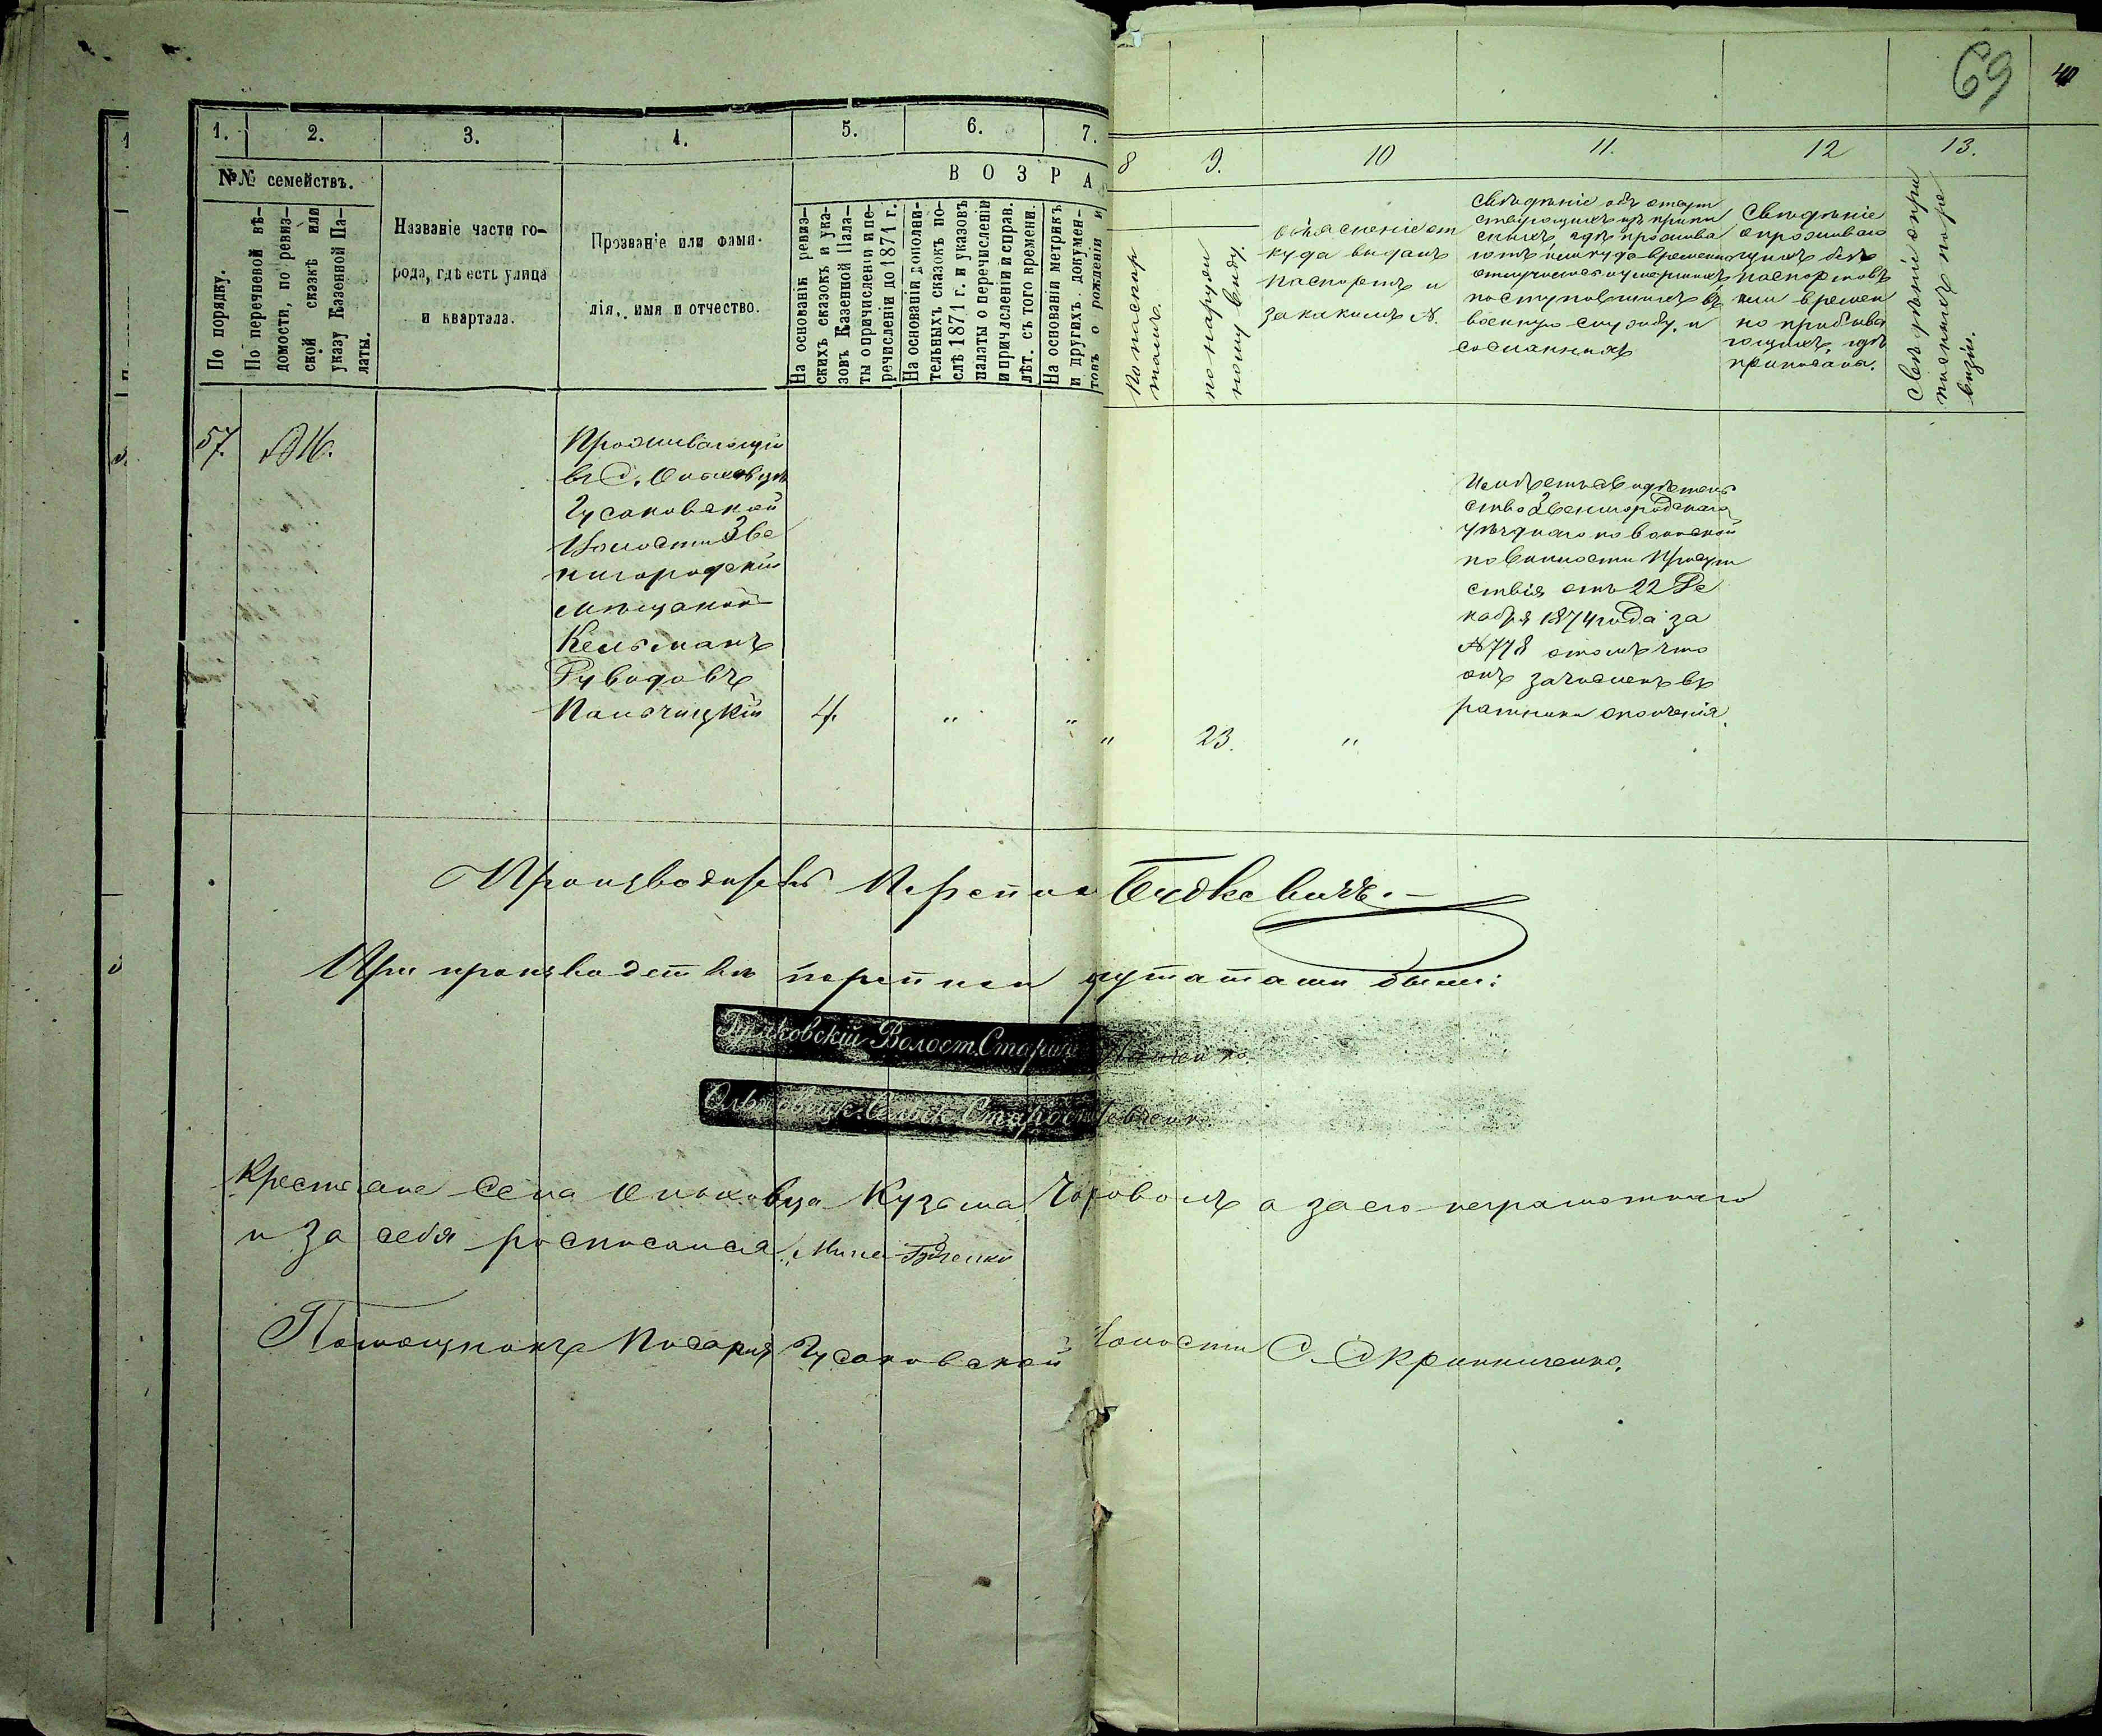 69
1.
2.
3.
4.
5.
6.
7.
8
9.
10
11.
12
13.
№№ семействъ.
ВОЗРА
По порядку.
По перечневой вѣ-
домости, по ревиз-
ской сказкѣ или
указу Казенной Па-
латы.
Названіе части го-
рода, гдѣ есть улица
и квартала.
Прозваніе или фами-
лія, имя и отчество.
На основаніи ревиз-
скихъ сказокъ и ука-
зовъ Казенной Пала-
ты о причисленіи и пе-
речисленіи до 1871 г.
На основаніи дополни-
тельныхъ сказокъ по-
слѣ 1871 г. и указовъ
палаты о перечисленіи
и причисленіи и справ.
лѣт. съ того времени.
На основаніи метрикъ
и другихъ докумен-
товъ о рожденіи и
по паспор
тамъ.
по наруж
ному виду.
объясненіе от
куда выданъ
паспортъ и
за какимъ №.
Свѣдѣніе объ отсут
ствующихъ изъ припи
сныхъ, гдѣ прожива
ютъ или куда временно
отлучились и умершихъ
поступившихъ въ
военную службу и
сосланныхъ
Свѣдѣніе
о проживаю
щихъ безъ
паспортовъ
или времен
но пребыва
ющихъ, гдѣ
приписаны.
Свѣдѣніе о при
писныхъ по ре
визіи.
57.
Проживающій
въ С. Ольховцѣ
Гусаковской
Волости Зве
нигородскій
мѣщанинъ
Кельманъ
Рувидовъ
Пальчицкій
4.
"
"
"
23.
"
Имѣетъ свидѣтель
ство Звенигородскаго
уѣзднаго по воинской
повинности Присут
ствія отъ 22 Де
кабря 1874 года за
№ 778 о томъ что
онъ зачисленъ въ
ратники ополченія.
Производитель Переписи
При производствѣ переписи путатами были:
Гусаковскій Волост. Старши
Ольховецк. Сельск. Старост
Крестьяне Села Ольховца Кузьма Чорноволъ а за его неграмотнаго
и за себя росписался
Помощникъ Писаря Гусаковской Волости С. Скринниченко.